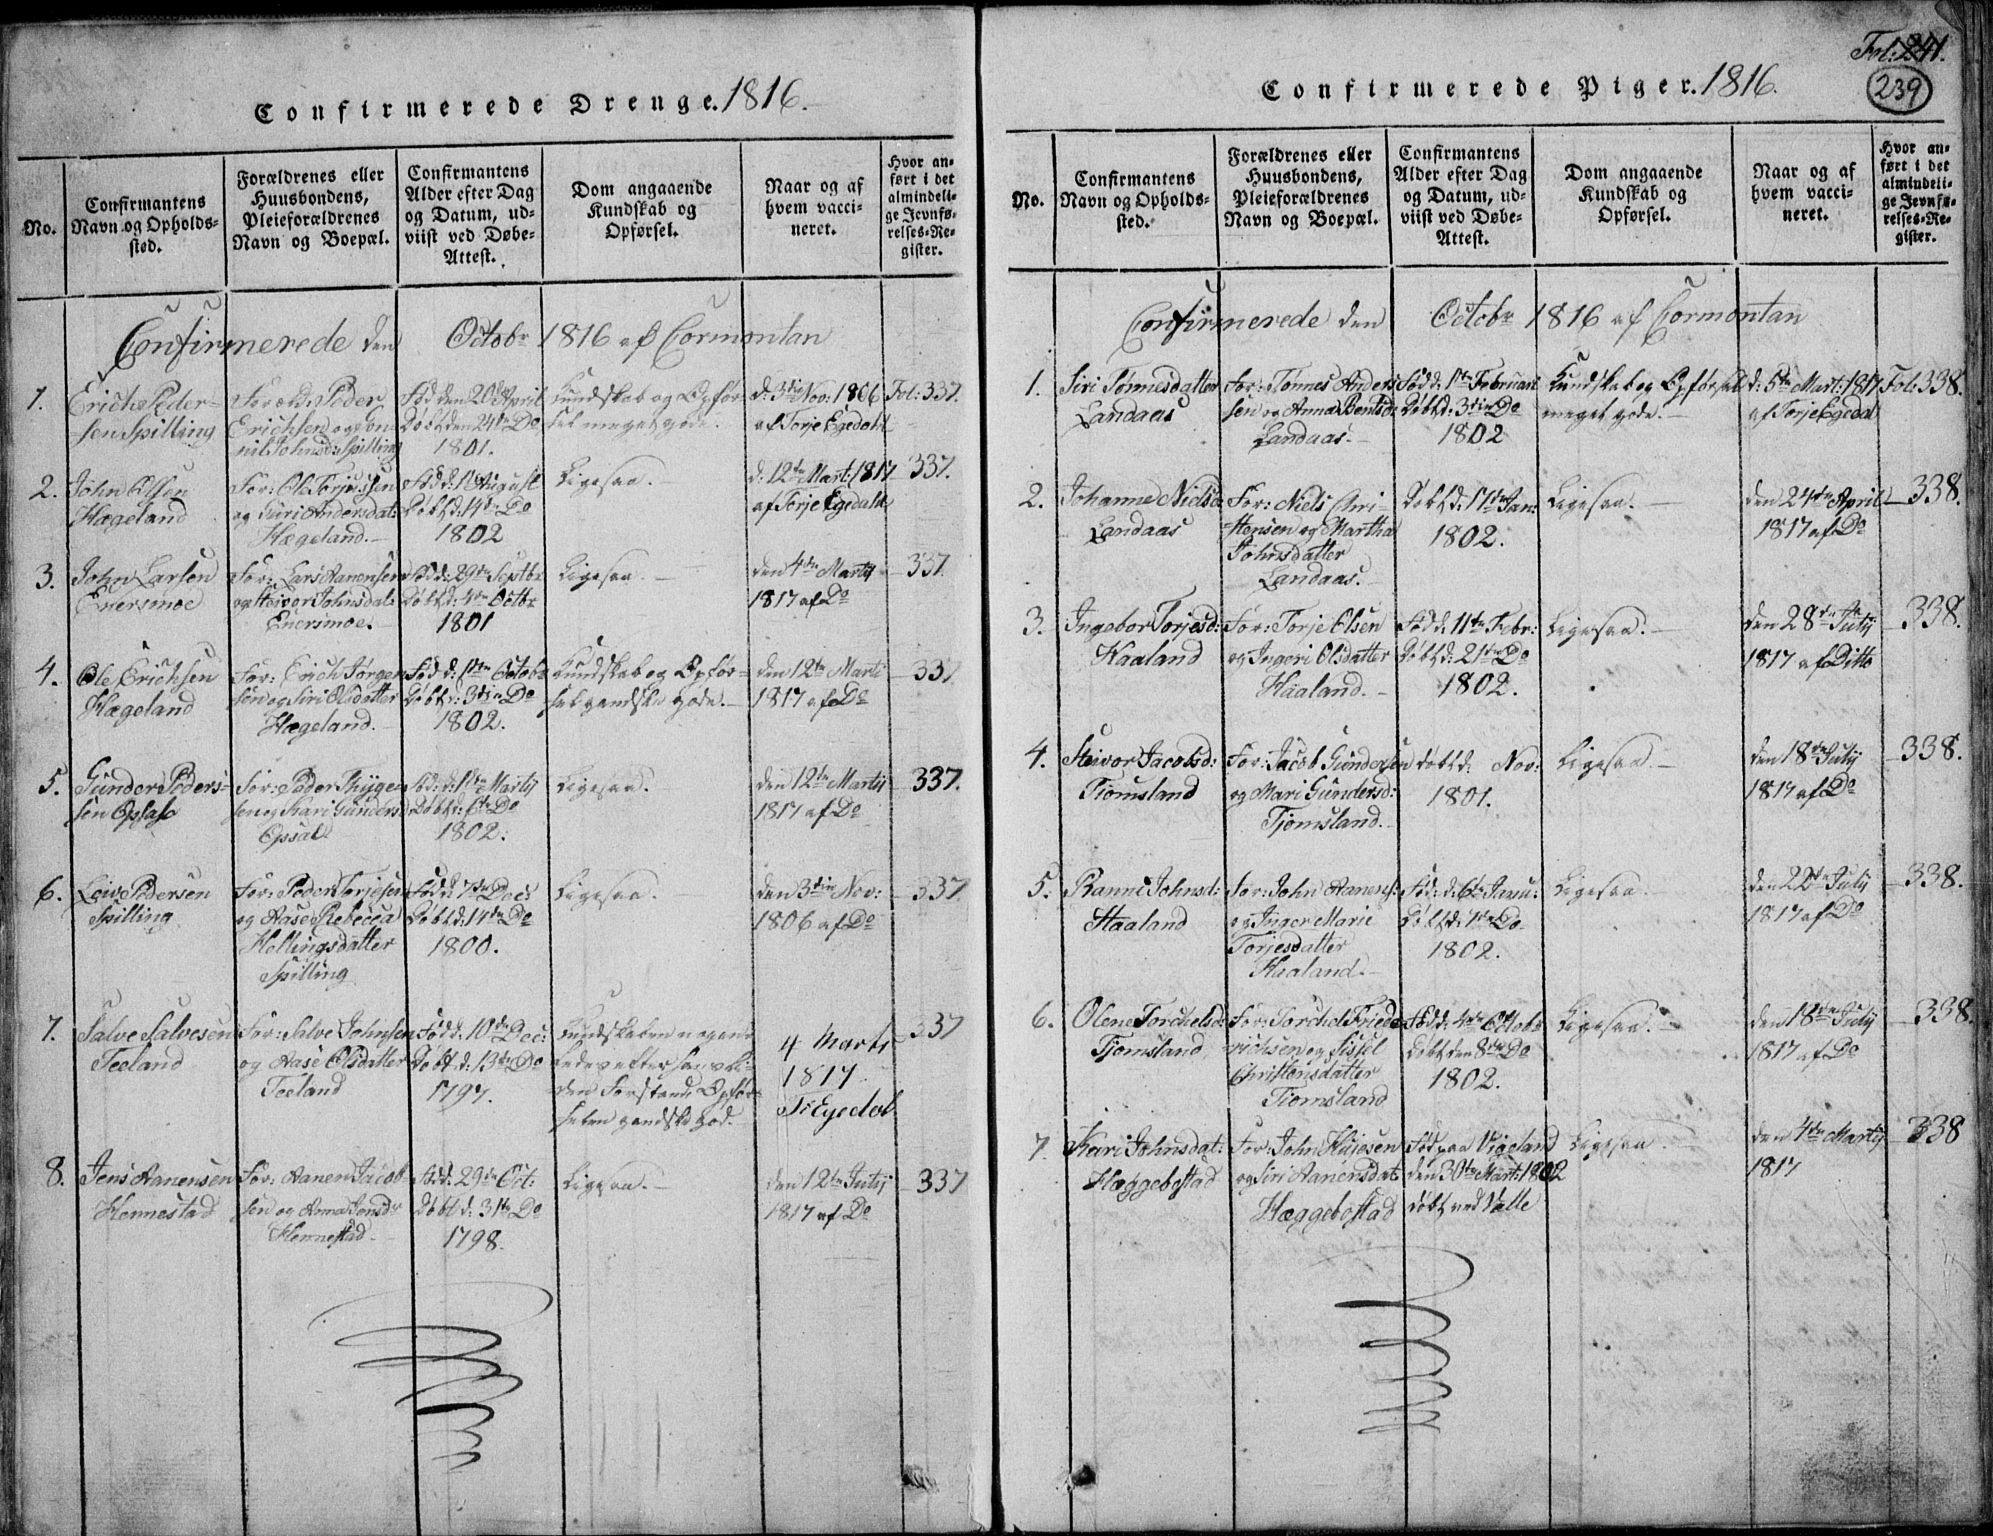 Confirmerede Drenge. 1816.
No.
Confirmantens
Navn og Opholds-
sted.
Forældrenes eller
Huusbondens,
Pleieforældrenes
Navn og Boepæl.
Confirmantens
Alder efter Dag
og Datum, ud-
viist ved Døbe-
Attest.
Dom angaaende
Kundskab og
Opførsel.
Naar og af
hvem vacci-
neret.
Hvor an-
ført i det
almindeli-
ge Jevnfø-
relses-Re-
gister.
Confirmerede den Octobr 1816 af Cormontan
1.
Erich Peder-
sen Spilling
Foreld: Peder
Erichsen og Gun-
nil Johnsd: Spilling
Fød den 20de April
Døbt den 24de Do
1801.
Kundskab og Opfør-
sel meget gode.
d: 3die Nov: 1806
af Torje Egedahl
Fol: 337.
2.
John Olsen
Hægeland
For: Ole Torjussen
og Siri Andersdat:
Hægeland.
Fød d: 1ste August
Døbt d: 14de Do
1802
Ligesaa.
d: 12te Mart: 1817
af Torje Egedahl
337.
3.
John Larsen
Enersmoe
For: Lars Aanensen
og Steivor Johnsdat:
Enersmoe.
Fød d: 29de Septbr
Døbt d: 4de Octbr
1801
Ligesaa.
den 4de Martij
1817 af Do
337.
4.
Ole Erichsen
Hægeland
For: Erich Jørgen-
sen og Siri Olsdatter
Hægeland.
Fød d: 1ste Octobr
Døbt d: 3die Do
1802.
Kundskab og Opfør-
sel gandske gode.
den 12te Marti
1817 af Do
337
5.
Gunder Peders-
sen Opsahl
For: Peder Thygen
sen og Kari Gunders:
Opsal
Fød: d: 1ste Martij
Døbt d: 6te Do
1802.
Ligesaa.
den 12te Martij
1817 af Do
337.
6.
Leive Pedersen
Spilling
For: Peder Torjesen
og Aase Rebecca
Hellingsdatter
Spilling
Fød d: 7de Dec:
Døbt d: 14de Do
1800.
Ligesaa.
den 3die Nov:
1806 af Do
337.
7.
Salve Salvesen
Teeland
For: Salve Johnsen
og Aase Olsdatter
Teeland
Fød d: 10de Dec:
Døbt d: 13de Do
1797.
Kundskaben nogen-
ledes efter hans
Forstand, Opfør-
selen gandske god.
4 Marts
1817
T: Egedal
337
8.
Jens Aanensen
Hennestad
For: Aanen Jacob-
sen og Anna Jonsdr
Hennestad
Fød d: 29de Oct:
Døbt d: 31te Do
1798.
Ligesaa.
den 12te Julij
1817 af Do
337
Fol: 241.
239
Confirmerede Piger. 1816.
No.
Confirmantens
Navn og Opholds-
sted.
Forældrenes eller
Huusbondens,
Pleieforældrenes
Navn og Boepæl.
Confirmantens
Alder efter Dag
og Datum, ud-
viist ved Døbe-
Attest.
Dom angaaende
Kundskab og
Opførsel.
Naar og af
hvem vacci-
neret.
Hvor an-
ført i det
almindeli-
ge Jevnfø-
relses-Re-
gister.
Confirmerede den Octobr 1816 af Cormontan
1.
Siri Tønnesdatter
Landaas
For: Tønnes Anders
sen og Anna Bentsd:
Landaas.
Fød d: 1ste Februari
Døbt d: 3die Do
1802
Kundskab og Opførsel
meget gode.
d: 5te Mart: 1817
af Torje Egedal
Fol: 338.
2.
Johanne Nielsd:
Landaas
For: Niels Chri-
stensen og Martha
Johnsdatter
Landaas.
Døbt d: 17de Jan:
1802.
Ligesaa.
den 24de April
1817 af Do
338.
3.
Ingebor Torjesd:
Haaland
For: Torje Olsen
og Ingeri Olsdatter
Haaland.
Fød d: 11te Febr:
Døbt d: 21de Do
1802.
Ligesaa.
den 28de Julij
1817 af Ditto
338.
4.
Steivor Jacobsd:
Tiomsland
For: Jacob Gundersen
og Mari Gundersd:
Tjomsland.
døbt d: Nov:
1801.
Ligesaa.
den 18de Julij
1817 af Do
338.
5.
Ranni Johnsd:
Haaland
For: John Aanens:
og Inger Marie
Torjesdatter
Haaland.
Fød: d: 6te Janu:
Døbt d: Do
1802.
Ligesaa.
den 22de Julij
1817 af Do
338.
6.
Olene Torchelsd:
Tjomsland
For: Torchel Friede-
richsen og Sissel
Christensdatter
Tiomsland
Fød d: 4de Octobr
Døbt den 8de Do
1802.
Ligesaa.
den 18de Julij
1817 af Do
338.
7.
Kari Johnsdat:
Hæggebostad
For: John
og Siri Aanensdat:
Hæggebostad
Fød paa Vigeland
den 30te Mart: 1802
døbt ved Valle
Ligesaa
den 4de Martij
1817
338